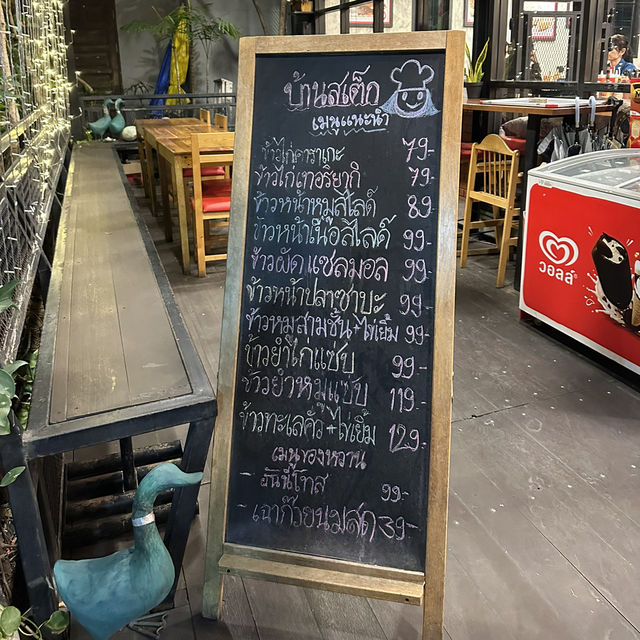 บ้านสเต็ก
เมนูแนะนำ
ข้าวไก่คาราเกะ 79-
ข้าวไก่เทอริยากิ 79-
ข้าวหน้าหมูสไลด์ 89-
ข้าวหน้าเนื้อสไลด์ 99-
ข้าวผัดแซลมอล 99-
ข้าวหน้าปลาซาบะ 99-
ข้าวหมูสามชั้น-ไข่เยิ้ม 99-
ข้าวยำไก่แซ่บ 99-
ข้าวยำหมูแซ่บ 119-
ข้าวทะเลคั่ว+ไข่เยิ้ม 129-
เมนูของหวาน
- ฮันนี่โทส 99-
- เฉาก๊วยนมสด 39-
วอลล์